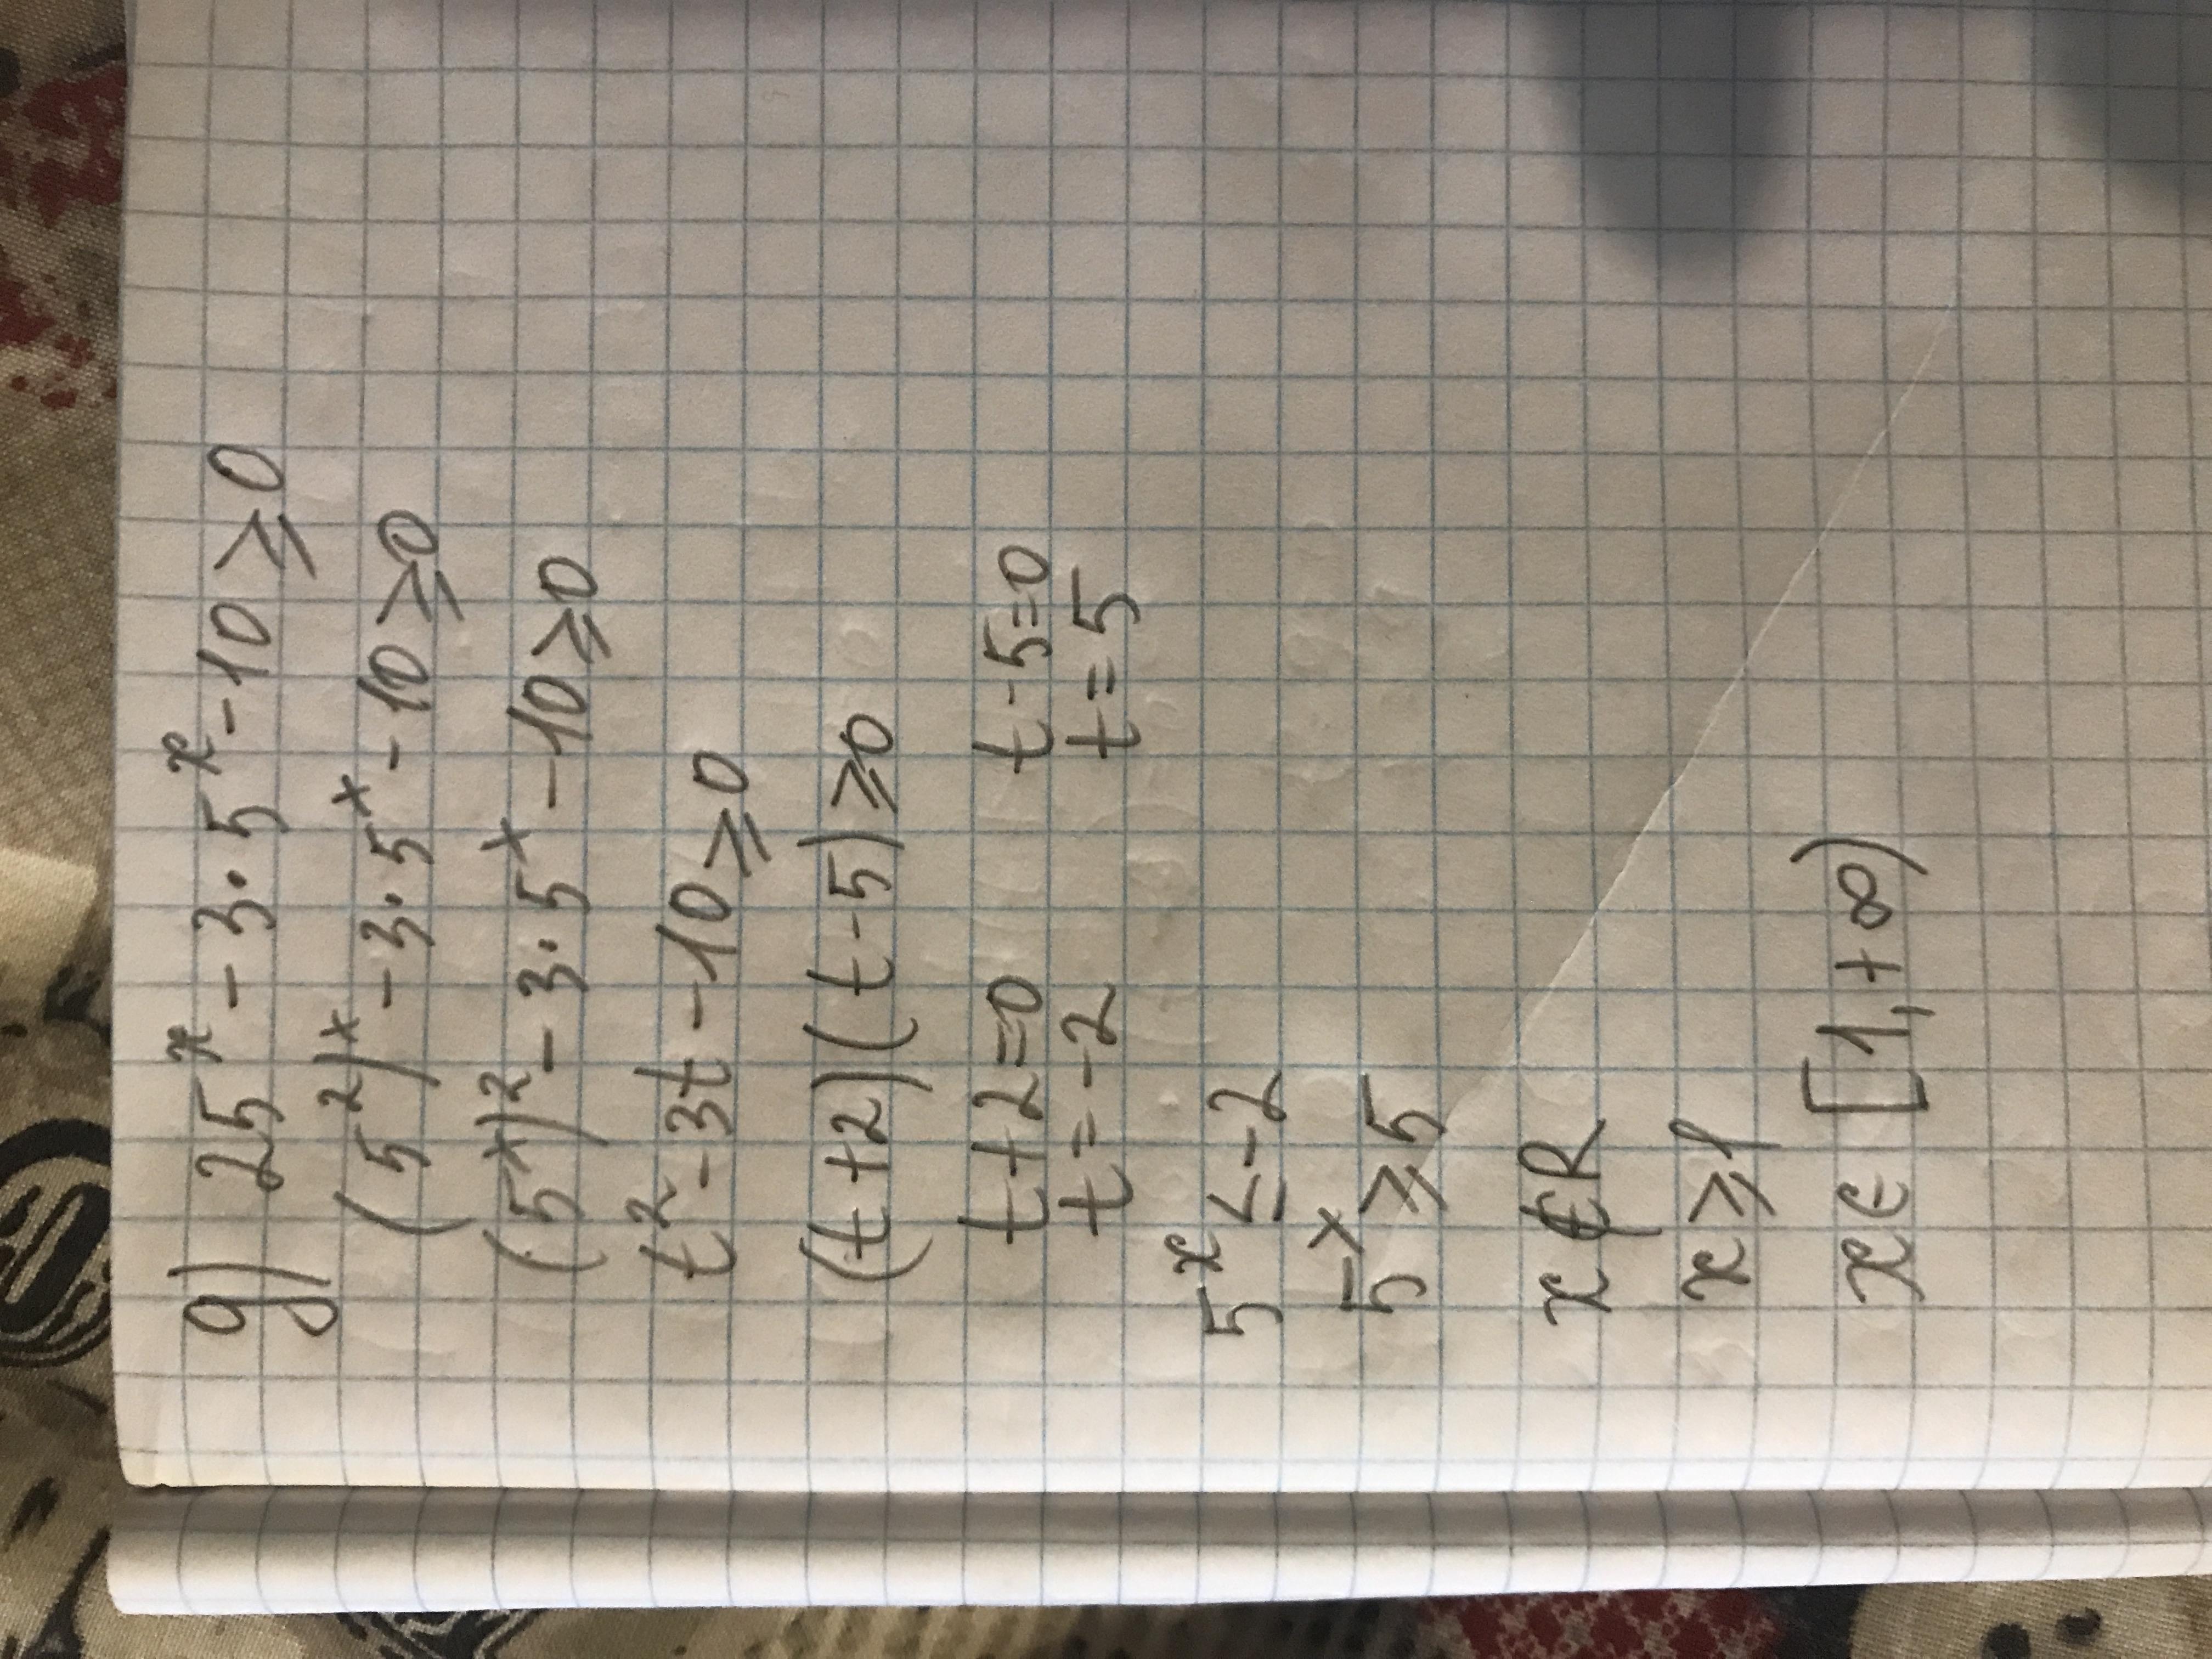 g) 25^x - 3 · 5^x - 10 ⩾ 0
(5^2)^x - 3 · 5^x - 10 ⩾ 0
(5^x)^2 - 3 · 5^x - 10 ⩾ 0
t^2 - 3t - 10 ⩾ 0
(t + 2)(t - 5) ⩾ 0
t + 2 = 0 t - 5 = 0
t = -2 t = 5
5^x ⩽ -2
5^x ⩾ 5
x ∉ R
x ⩾ 1
x ∈ [1, +∞)